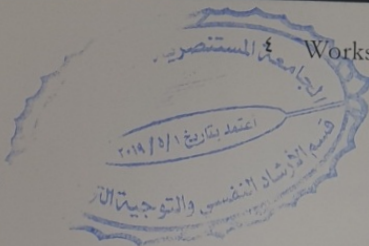 ٤ Works
الجامعة المستنصرية
اعتمد بتاريخ ٢٠١٩/٥/١
قسم الارشاد النفسي والتوجيه